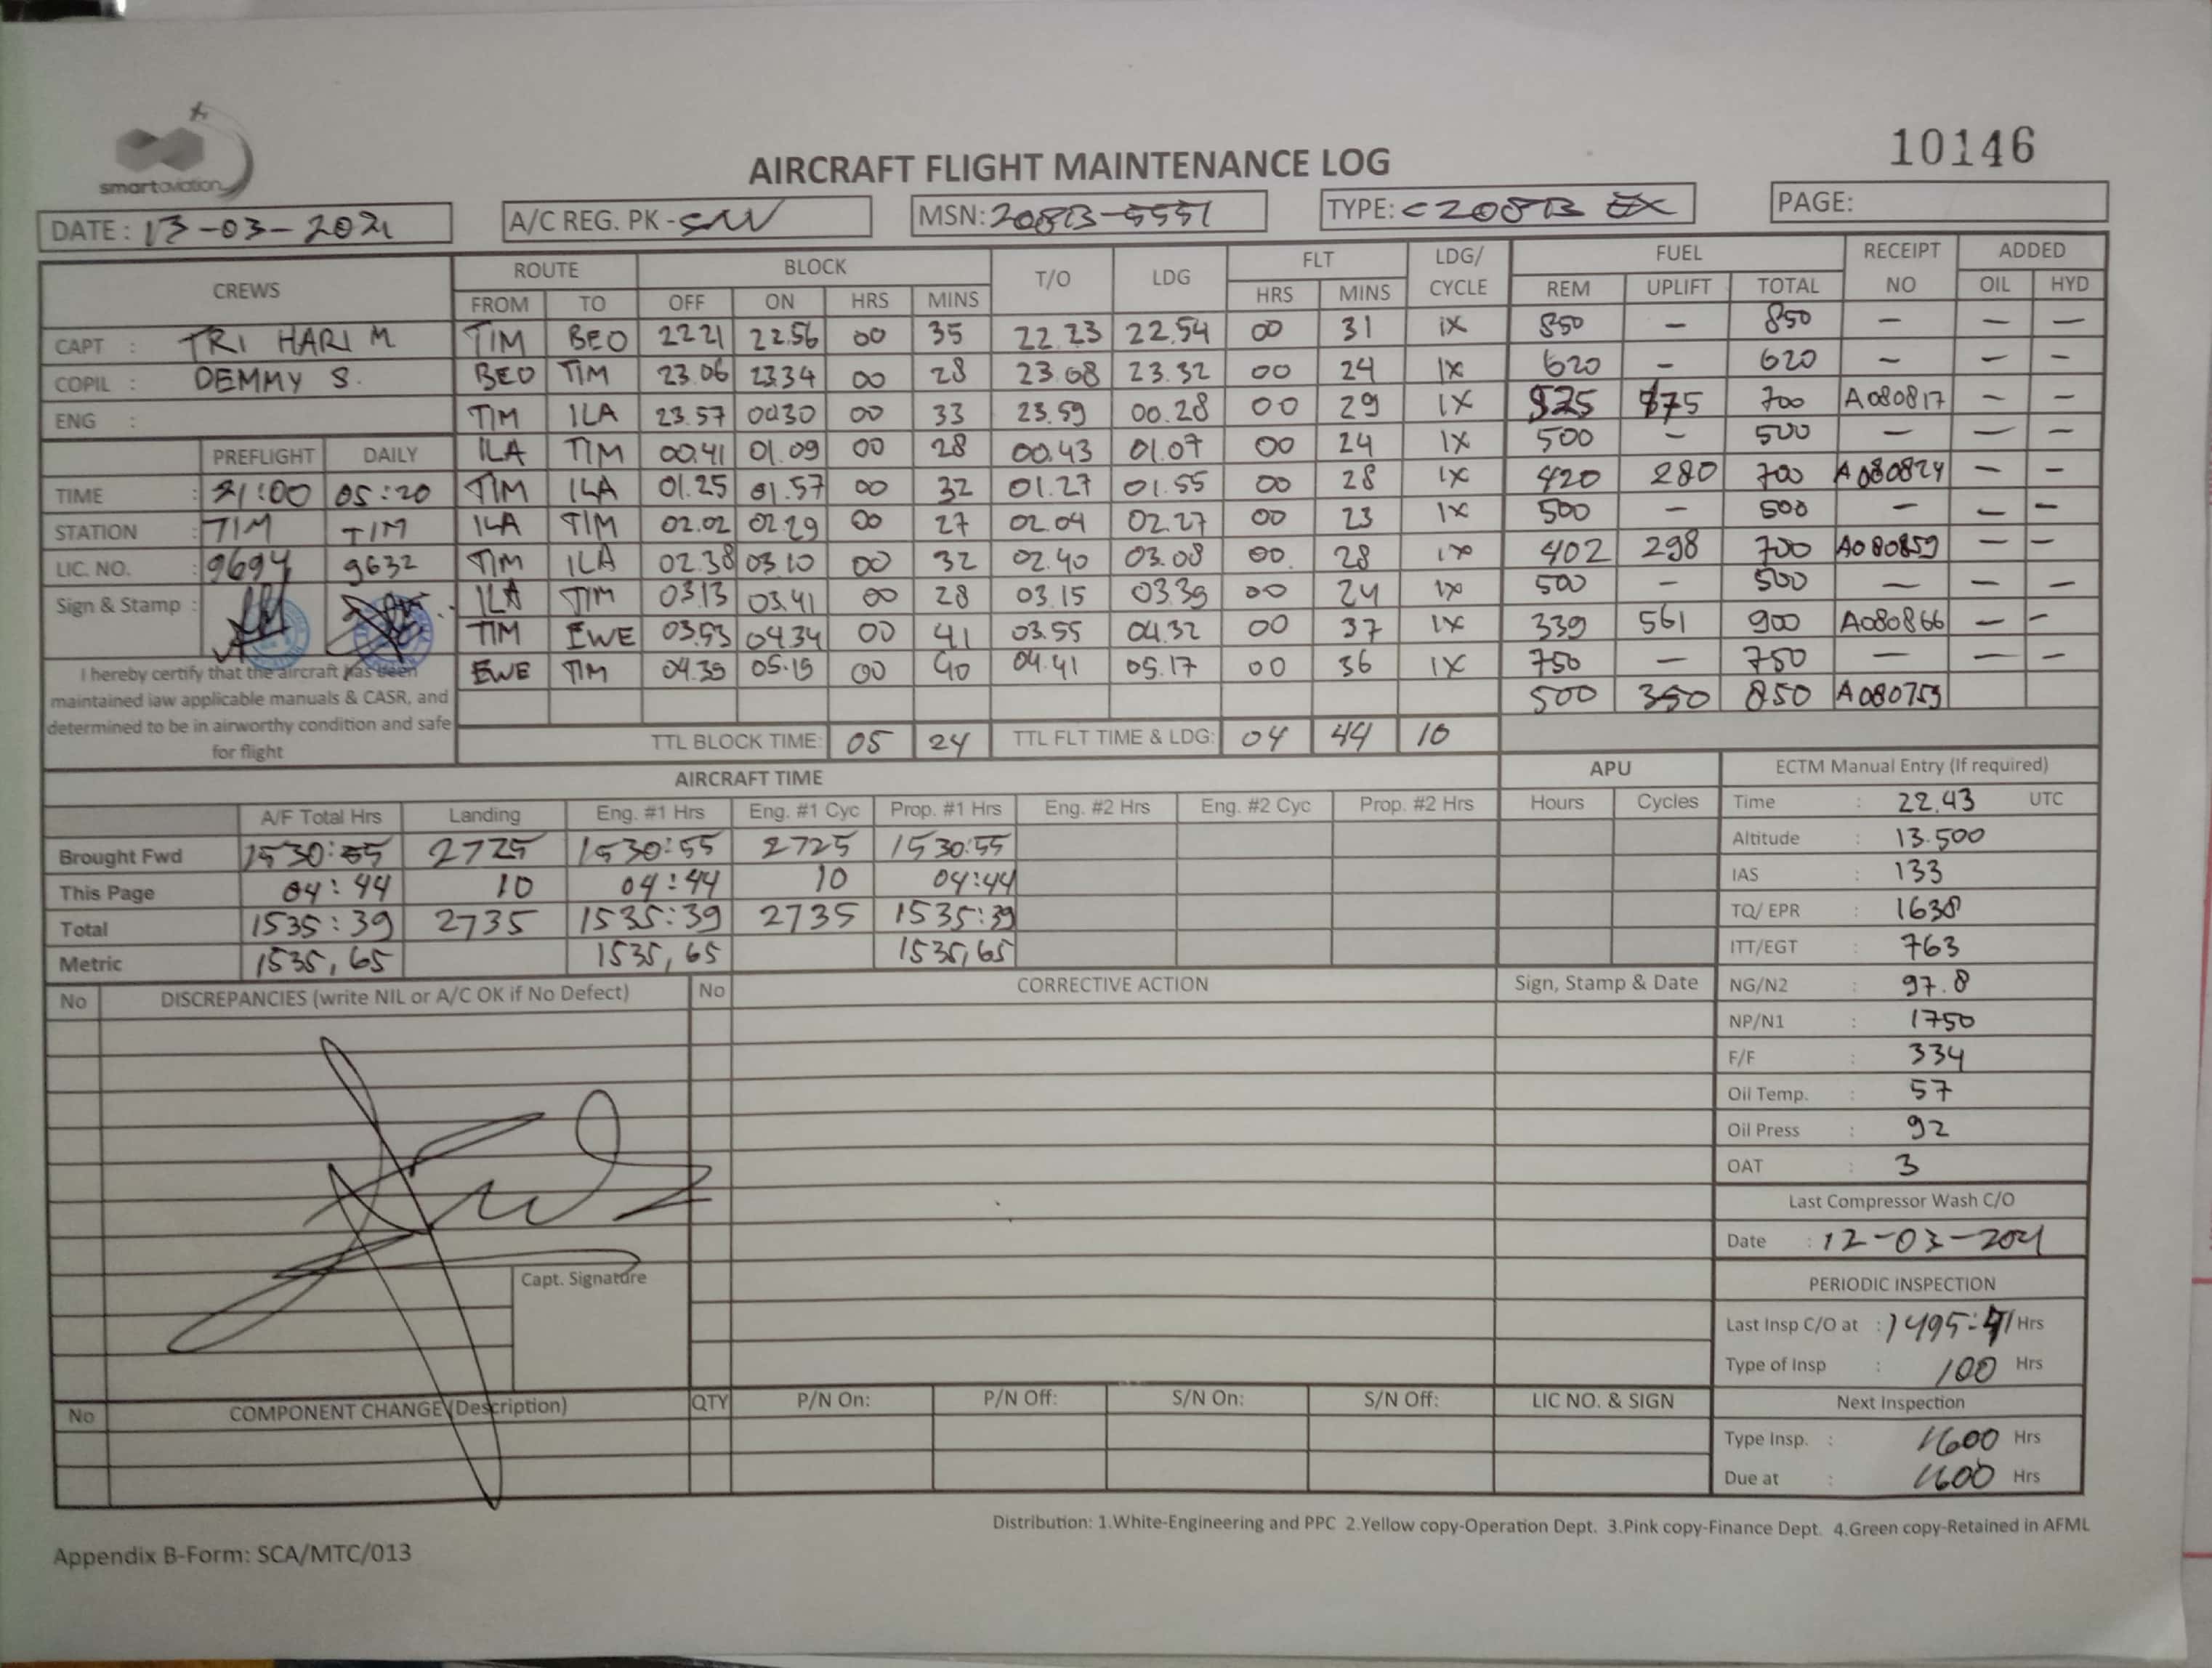 smartaviation
10146
AIRCRAFT FLIGHT MAINTENANCE LOG
DATE : 13-03-2021 A/C REG. PK - MSN: 208B-5551 TYPE: C208B EX PAGE:
CREWS ROUTE BLOCK T/O LDG FLT LDG/ CYCLE FUEL RECEIPT NO ADDED
FROM TO OFF ON HRS MINS HRS MINS REM UPLIFT TOTAL OIL HYD
CAPT : TRI HARI M TIM BEO 2221 22.56 00 35 22.23 22.54 00 31 1X 850 – 850 – – –
COPIL : DEMMY S. BEO TIM 23.06 2334 00 28 23.08 23.32 00 24 1X 620 – 620 – – –
ENG : TIM ILA 23.57 0030 00 33 23.59 00.28 00 29 1X 525 175 700 A080817 – –
PREFLIGHT DAILY ILA TIM 00.41 01.09 00 28 00.43 01.07 00 24 1X 500 – 500 – – –
TIME : 21:00 05:20 TIM ILA 01.25 01.57 00 32 01.27 01.55 00 28 1X 420 280 700 A080824 – –
STATION : TIM TIM ILA TIM 02.02 02.29 00 27 02.04 02.27 00 23 1X 500 – 500 – – –
LIC. NO. : 9694 9632 TIM ILA 02.38 03.10 00 32 02.40 03.08 00. 28 1X 402 298 700 A080859 – –
Sign & Stamp : ILA TIM 03.13 03.41 00 28 03.15 03.39 00 24 1X 500 – 500 – – –
TIM EWE 03.53 04.34 00 41 03.55 04.32 00 37 1X 339 561 900 A080866 – –
EWE TIM 04.39 05.19 00 40 04.41 05.17 00 36 1X 750 – 750 – – –
500 350 850 A080759
I hereby certify that the aircraft has been
maintained iaw applicable manuals & CASR, and
determined to be in airworthy condition and safe
for flight
TTL BLOCK TIME: 05 24 TTL FLT TIME & LDG: 04 44 10
AIRCRAFT TIME APU ECTM Manual Entry (If required)
A/F Total Hrs Landing Eng. #1 Hrs Eng. #1 Cyc Prop. #1 Hrs Eng. #2 Hrs Eng. #2 Cyc Prop. #2 Hrs Hours Cycles Time : 22.43 UTC
Brought Fwd 1530:55 2725 1530:55 2725 1530:55 Altitude : 13.500
This Page 04:44 10 04:44 10 04:44 IAS : 133
Total 1535:39 2735 1535:39 2735 1535:39 TQ/ EPR : 1638
Metric 1535,65 1535,65 1535,65 ITT/EGT : 763
No DISCREPANCIES (write NIL or A/C OK if No Defect) No CORRECTIVE ACTION Sign, Stamp & Date NG/N2 : 97.8
NP/N1 : 1750
F/F : 334
Oil Temp. : 57
Oil Press : 92
OAT : 3
Last Compressor Wash C/O
Date : 12-03-2021
Capt. Signature
PERIODIC INSPECTION
Last Insp C/O at : Hrs
Type of Insp : 100 Hrs
No COMPONENT CHANGE (Description) QTY P/N On: P/N Off: S/N On: S/N Off: LIC NO. & SIGN Next Inspection
Type Insp. : 1600 Hrs
Due at : 1600 Hrs
Distribution: 1.White-Engineering and PPC 2.Yellow copy-Operation Dept. 3.Pink copy-Finance Dept. 4.Green copy-Retained in AFML
Appendix B-Form: SCA/MTC/013